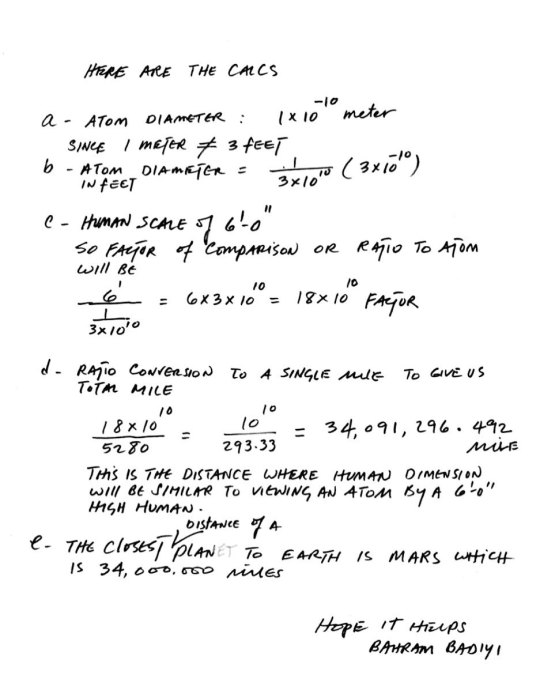 HERE ARE THE CALCS
a - ATOM DIAMETER : 1 x 10⁻¹⁰ meter
SINCE 1 METER ≠ 3 FEET
b - ATOM DIAMETER = 1 / 3x10¹⁰ (3x10⁻¹⁰)
IN FEET
c - HUMAN SCALE of 6'-0"
SO FACTOR of COMPARISON OR RATIO TO ATOM
WILL BE
6' / (1 / 3x10¹⁰) = 6x3x10¹⁰ = 18x10¹⁰ FACTOR
d - RATIO CONVERSION TO A SINGLE MILE TO GIVE US
TOTAL MILE
18x10¹⁰ / 5280 = 10¹⁰ / 293.33 = 34,091,296.492
MILE
THIS IS THE DISTANCE WHERE HUMAN DIMENSION
WILL BE SIMILAR TO VIEWING AN ATOM BY A 6'-0"
HIGH HUMAN.
DISTANCE of A
e - THE CLOSEST PLANET TO EARTH IS MARS WHICH
IS 34,000,000 MILES
HOPE IT HELPS
BAHRAM BADIYI